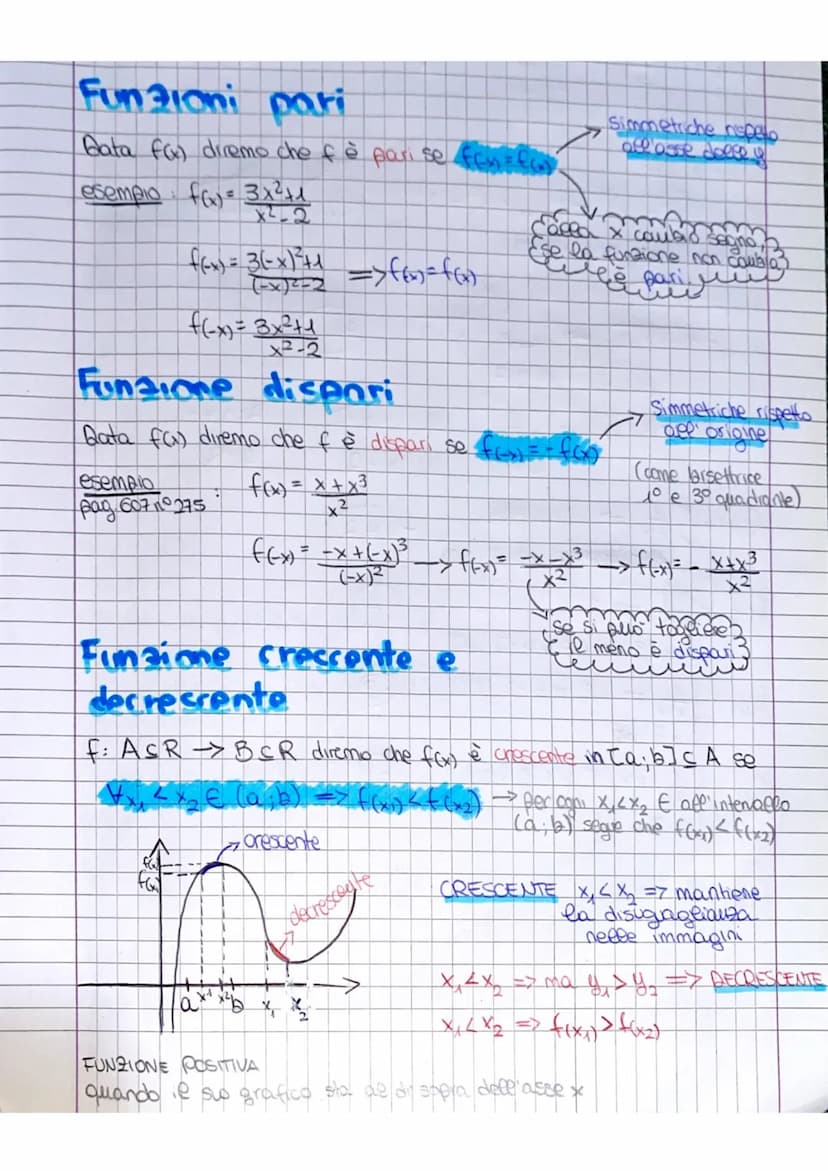 Funzioni pari
Data f(x) diremo che f è pari se f(-x) = f(x)
simmetriche rispetto
all'asse delle y
esempio : f(x) = (3x²+1)/(x²-2)
f(-x) = (3(-x)²+1)/((-x)²-2) => f(-x) = f(x)
x cambio segno,
se la funzione non cambia
è pari
f(-x) = (3x²+1)/(x²-2)
Funzione dispari
Data f(x) diremo che f è dispari se f(-x) = -f(x)
simmetriche rispetto
all'origine
(come bisettrice
1° e 3° quadrante)
esempio
pag. 607 n° 275 : f(x) = (x+x³)/x²
f(-x) = (-x+(-x)³)/(-x)² → f(-x) = (-x-x³)/x² → f(-x) = - (x+x³)/x²
se si può togliere
il meno è dispari
Funzione crescente e
decrescente
f: A⊆R → B⊆R diremo che f(x) è crescente in [a;b] ⊆ A se
∀x₁ < x₂ ∈ (a;b) => f(x₁) < f(x₂) → per ogni x₁<x₂ ∈ all'intervallo
(a;b) segue che f(x₁) < f(x₂)
crescente
f(x₂)
f(x₁)
decrescente
a x1 x2 b x₁ x₂
CRESCENTE x₁ < x₂ => mantiene
la disuguaglianza
nelle immagini
x₁ < x₂ => ma y₁ > y₂ => DECRESCENTE
x₁ < x₂ => f(x₁) > f(x₂)
FUNZIONE POSITIVA
quando il suo grafico sta al di sopra dell'asse x